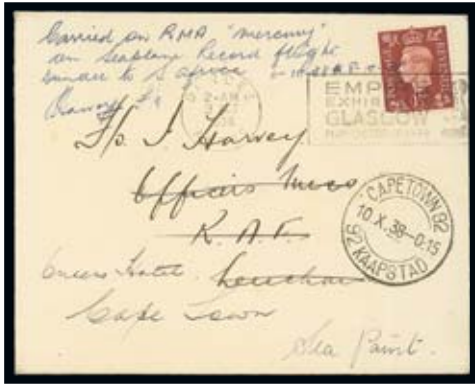 Carried on RMA "Mercury"
on Seaplane Record flight
Dundee to S Africa
2-AM
EMP
EXHIB
GLASGOW
F/o. I Harvey
Officers Mess
R.A.F.
Leuchars
Queens Hotel.
Cape Town
Sea Point.
CAPETOWN 92
10 X.38-0.15
92 KAAPSTAD